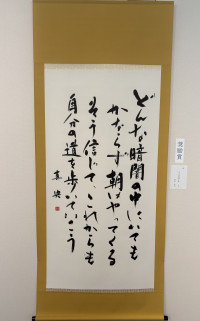 どんな暗闇の中にいても
かならず朝はやってくる
そう信じて、これからも
自分の道を歩いていこう